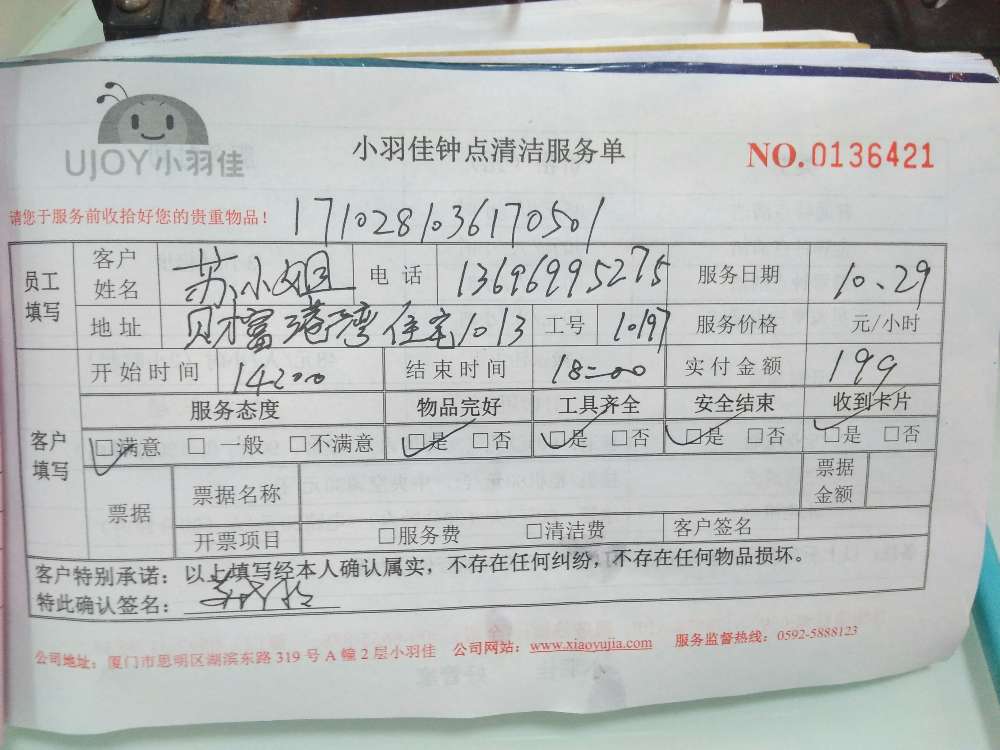 UJOY小羽佳
小羽佳钟点清洁服务单
NO.0136421
请您于服务前收拾好您的贵重物品！
1710281036170501
员工填写 客户姓名 苏小姐 电话 13696995275 服务日期 10.29
地址 财富港湾住宅1013 工号 10197 服务价格 元/小时
开始时间 14:00 结束时间 18:00 实付金额 199
客户填写 服务态度 物品完好 工具齐全 安全结束 收到卡片
☑满意 □一般 □不满意 ☑是 □否 ☑是 □否 ☑是 □否 ☑是 □否
票据 票据名称 票据金额
开票项目 □服务费 □清洁费 客户签名
客户特别承诺：以上填写经本人确认属实，不存在任何纠纷，不存在任何物品损坏。
特此确认签名：
公司地址：厦门市思明区湖滨东路319号A幢2层小羽佳 公司网站：www.xiaoyujia.com 服务监督热线：0592-5888123